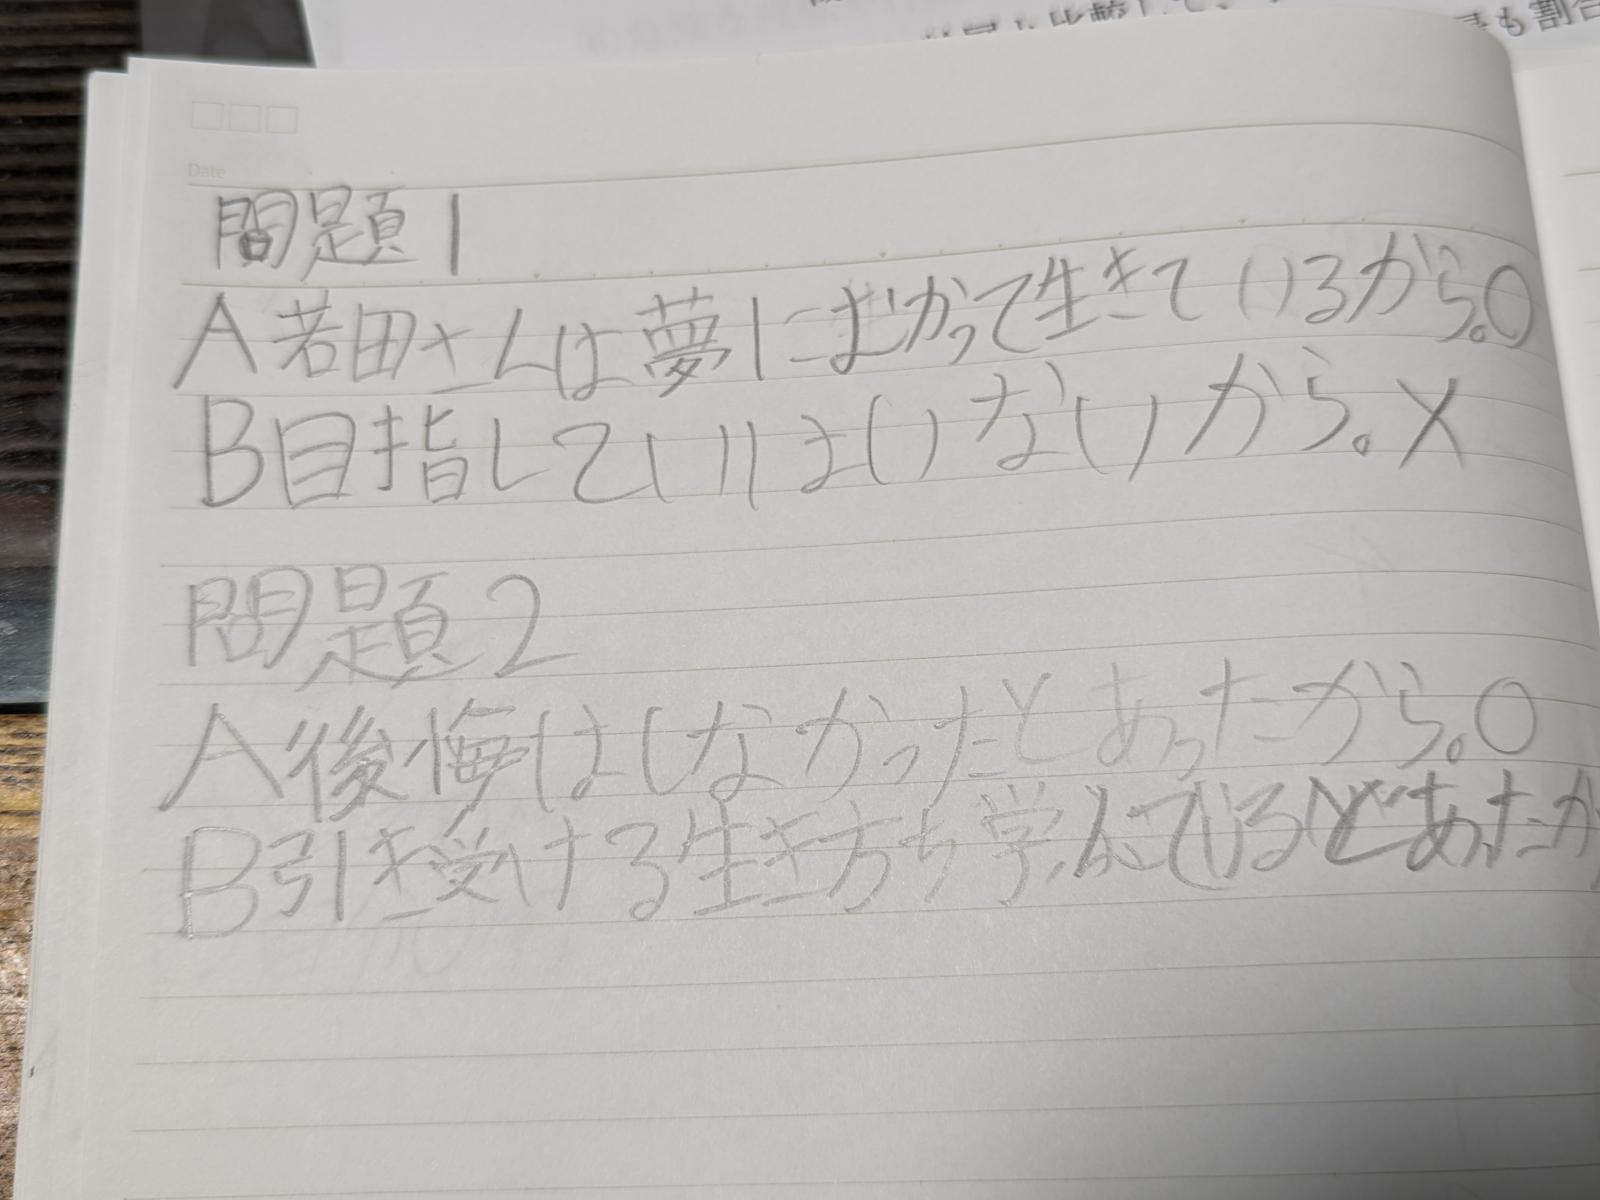 も割合
Date
問題1
A若田さんは夢にむかって生きているから。○
B目指していはいないから。×
問題2
A後悔はしなかったとあったから。○
B引き受ける生き方ち学んでいるとあったか